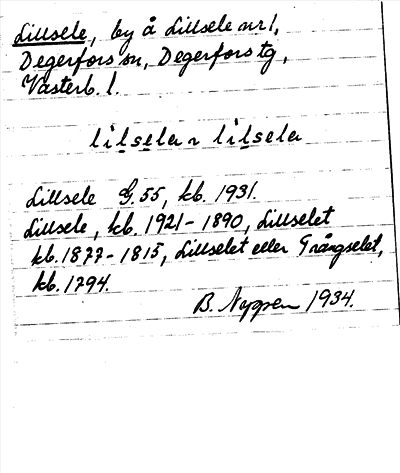 Lillsele, by å Lillsele nr 1,
Degerfors sn, Degerfors tg,
Västerb. l.
lilsela ~ lilsela
Lillsele G. 55, kb. 1931.
Lillsele, kb. 1921-1890, Lillselet
kb. 1877-1815, Lillselet eller Trångselet,
kb. 1794.
B. Nygren 1934.